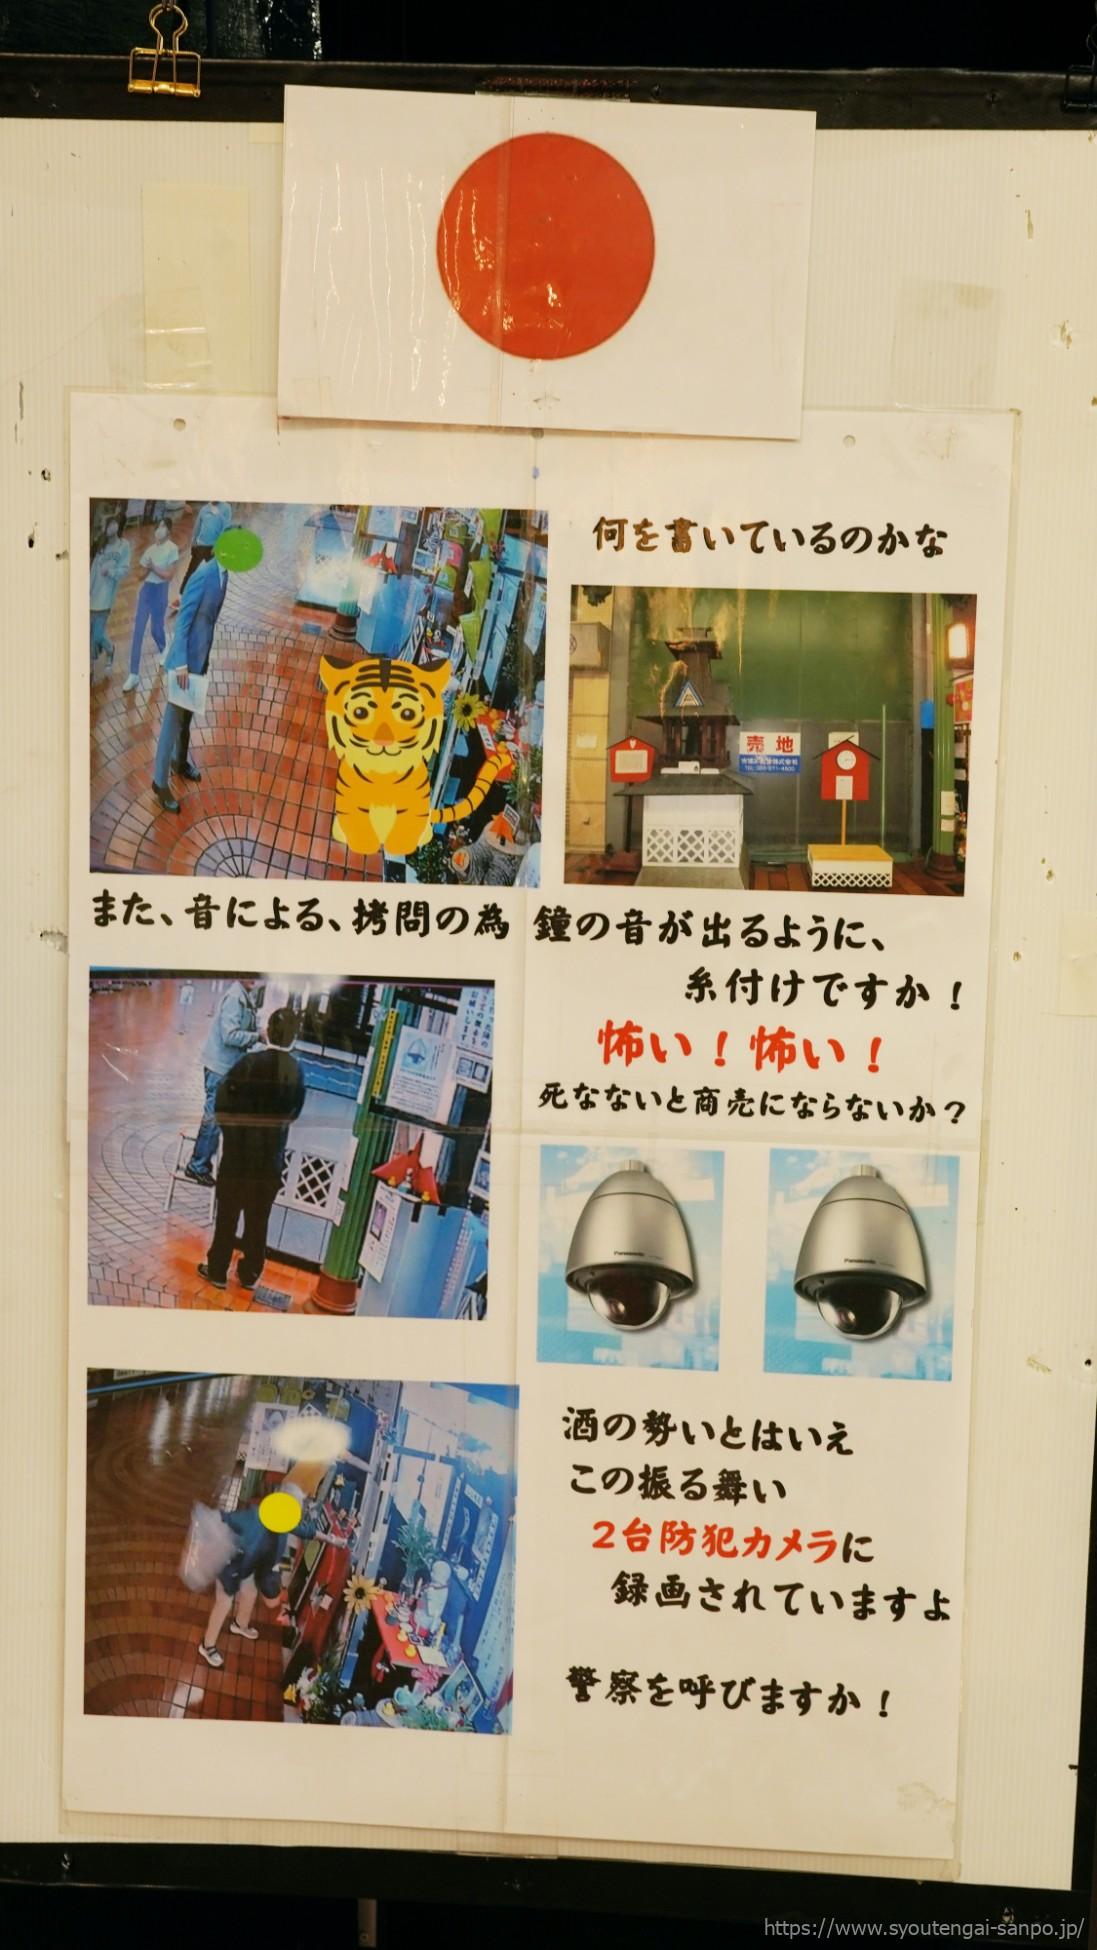 何を書いているのかな
売地
また、音による、拷問の為 鐘の音が出るように、
糸付けですか！
怖い！怖い！
死なないと商売にならないか？
Panasonic
Panasonic
酒の勢いとはいえ
この振る舞い
2台防犯カメラに
録画されていますよ
警察を呼びますか！
https://www.syoutengai-sanpo.jp/